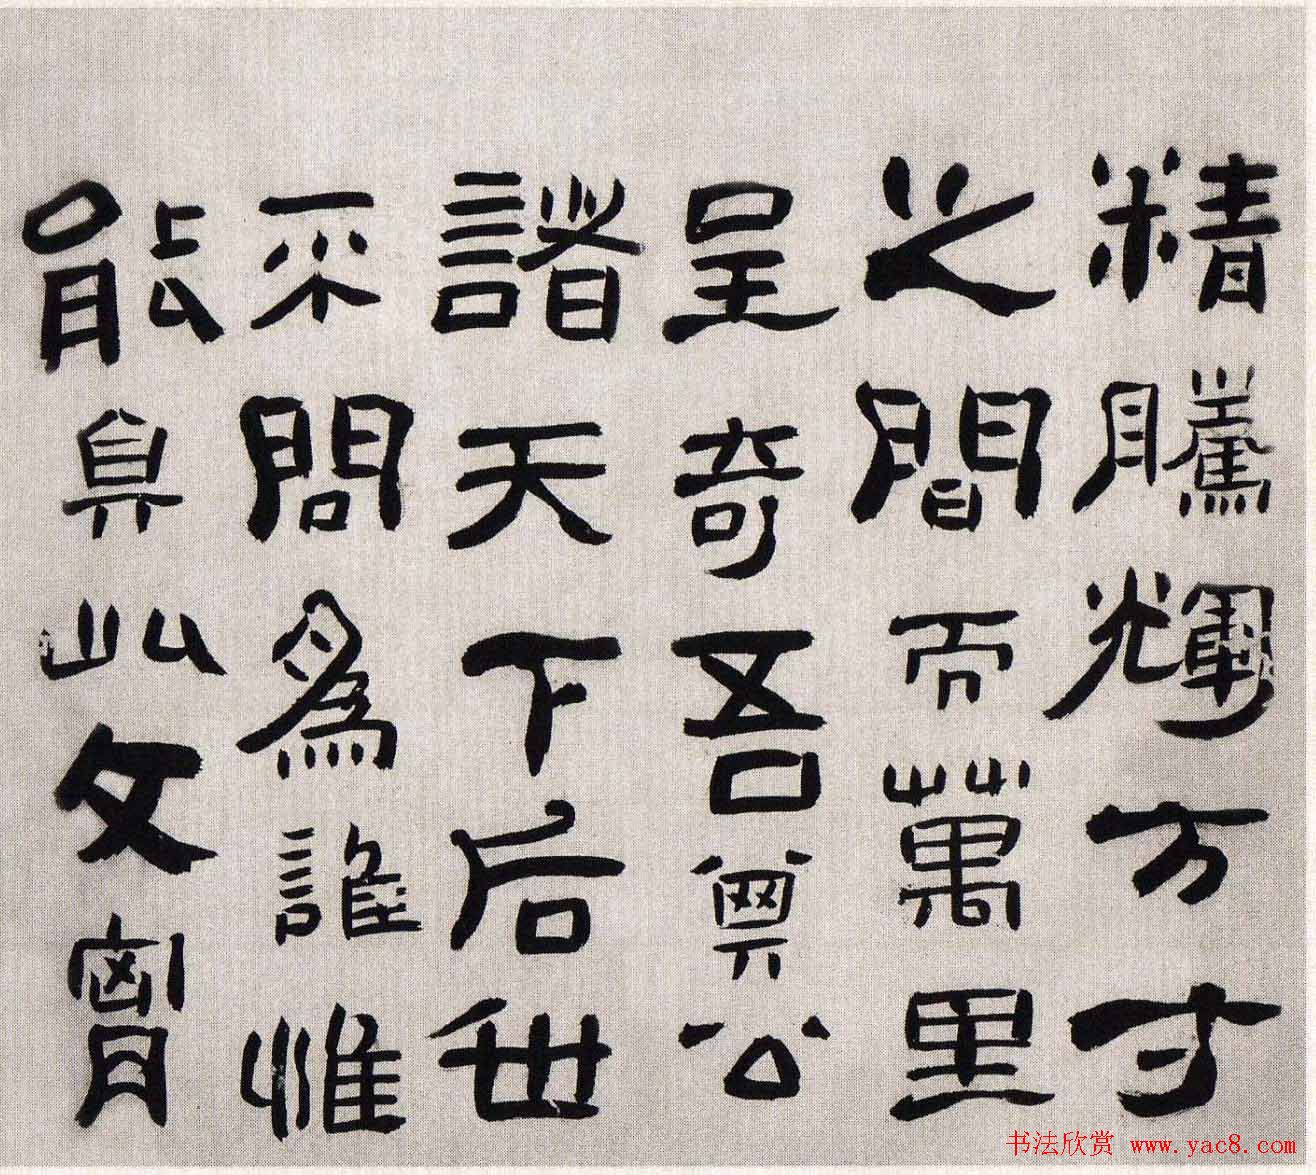 精騰輝方寸
之間而萬里
呈奇吾公
諸天下后世
來問爲誰惟
能具此文胷
书法欣赏 www.yac8.com